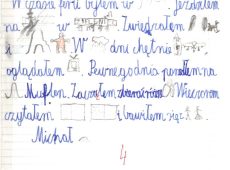 W czasie ferii byłem w . Jeździłem
na w . Zwiedzałem
i . W dni chętnie
oglądałem . Pewnego dnia na
Zacząłem . Wieczorem
czytałem i bawiłem się z .
Michał
4